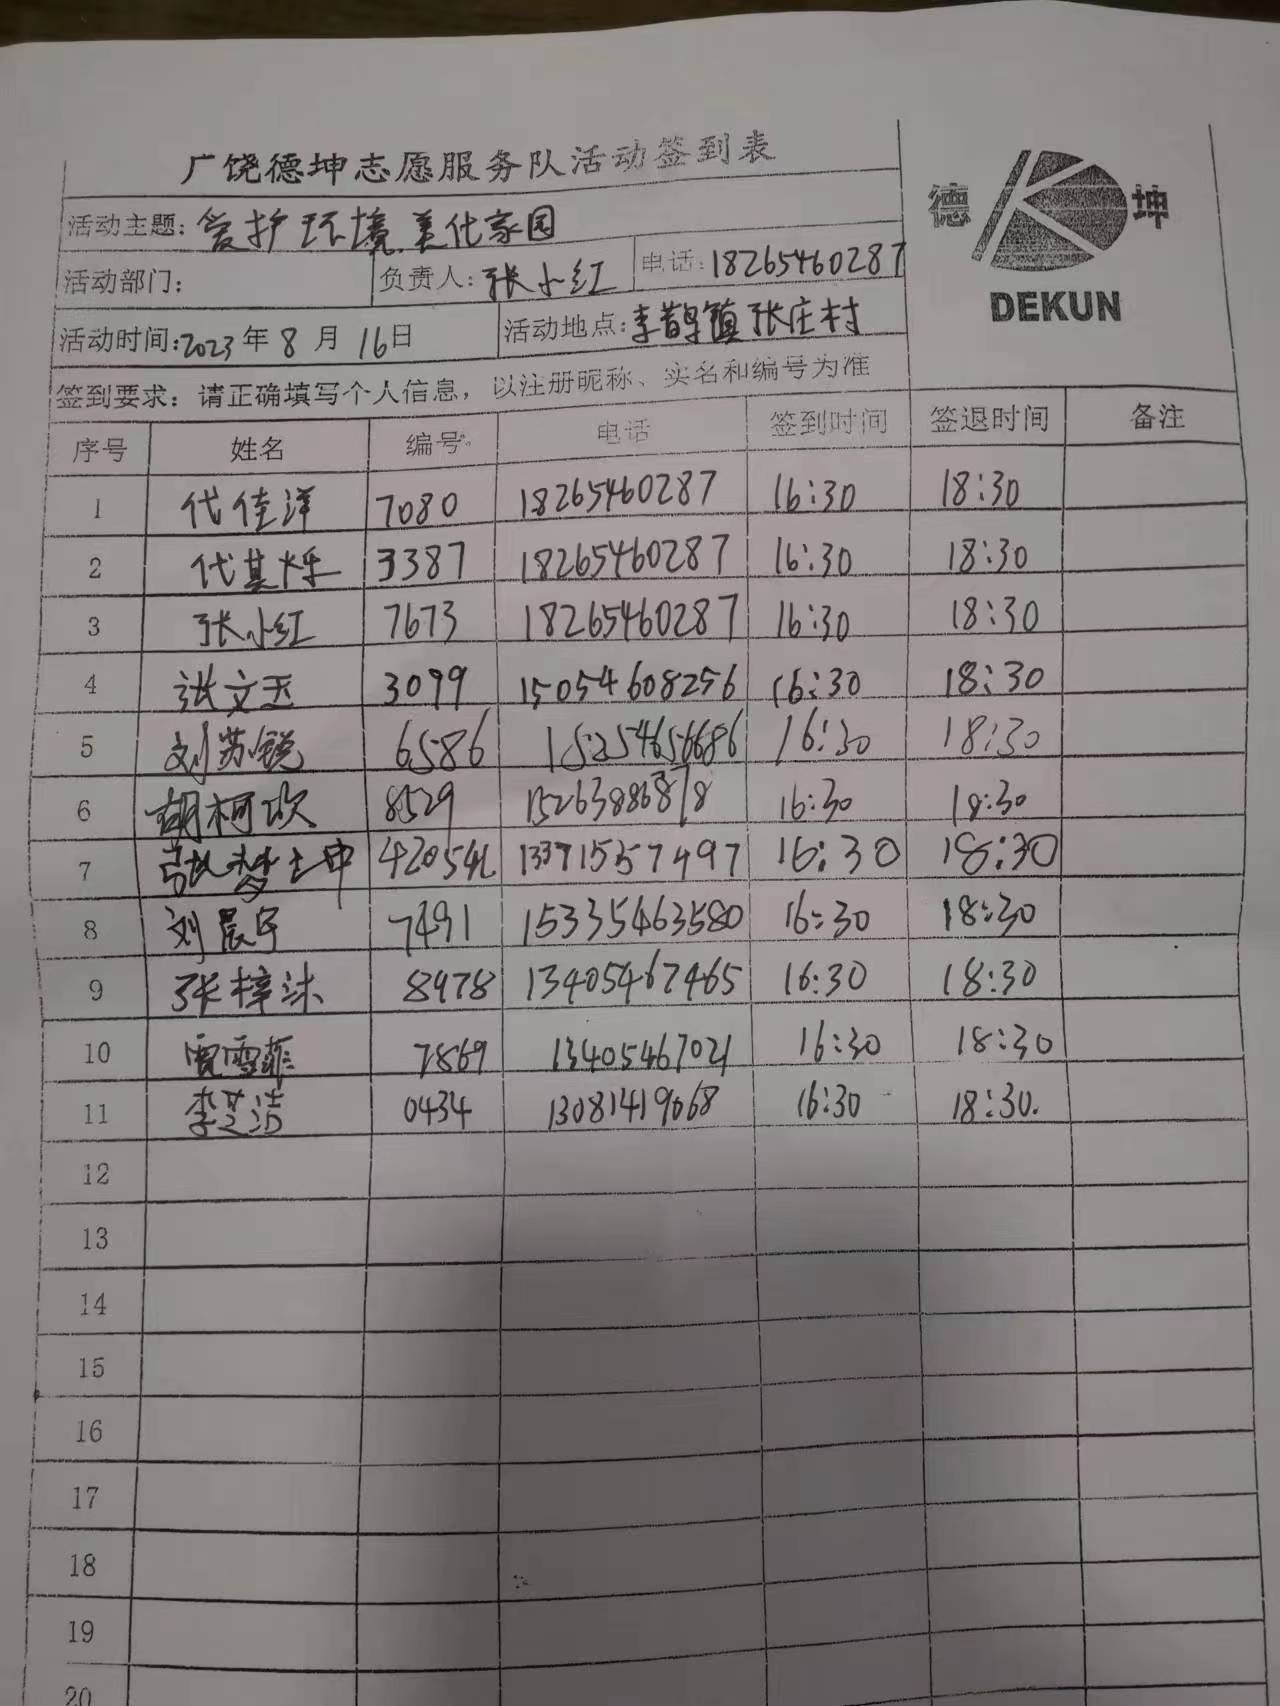 广饶德坤志愿服务队活动签到表
德 坤
DEKUN
活动主题：爱护环境、美化家园
活动部门： 负责人：张小红 电话：18265460287
活动时间：2023年8月16日 活动地点：李鹊镇张庄村
签到要求：请正确填写个人信息，以注册昵称、实名和编号为准
序号 姓名 编号 电话 签到时间 签退时间 备注
1 代佳洋 7080 18265460287 16:30 18:30
2 代其烁 3387 18265460287 16:30 18:30
3 张小红 7673 18265460287 16:30 18:30
4 张文玉 3099 15054608256 16:30 18:30
5 刘苏锐 6586 16:30 18:30
6 胡柯欣 8529 16:30 18:30
7 16:30 18:30
8 刘晨宇 7491 15335463580 16:30 18:30
9 张梓沐 8978 13405467465 16:30 18:30
10 雪菲 7869 13405467021 16:30 18:30
11 李芝洁 0434 13081419068 16:30 18:30.
12
13
14
15
16
17
18
19
20